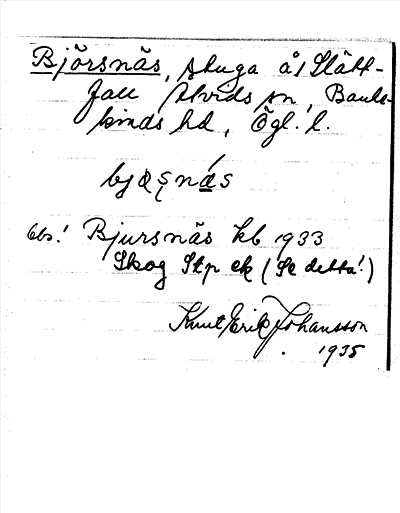 Björsnäs, stuga å/ Slätt-
fall Åtvids sn, Bank-
kinds hd, Ögl. l.
Obs.! Bjursnäs kb 1933
Skog Stp ek (Se detta!)
Knut Erik Johansson
1935